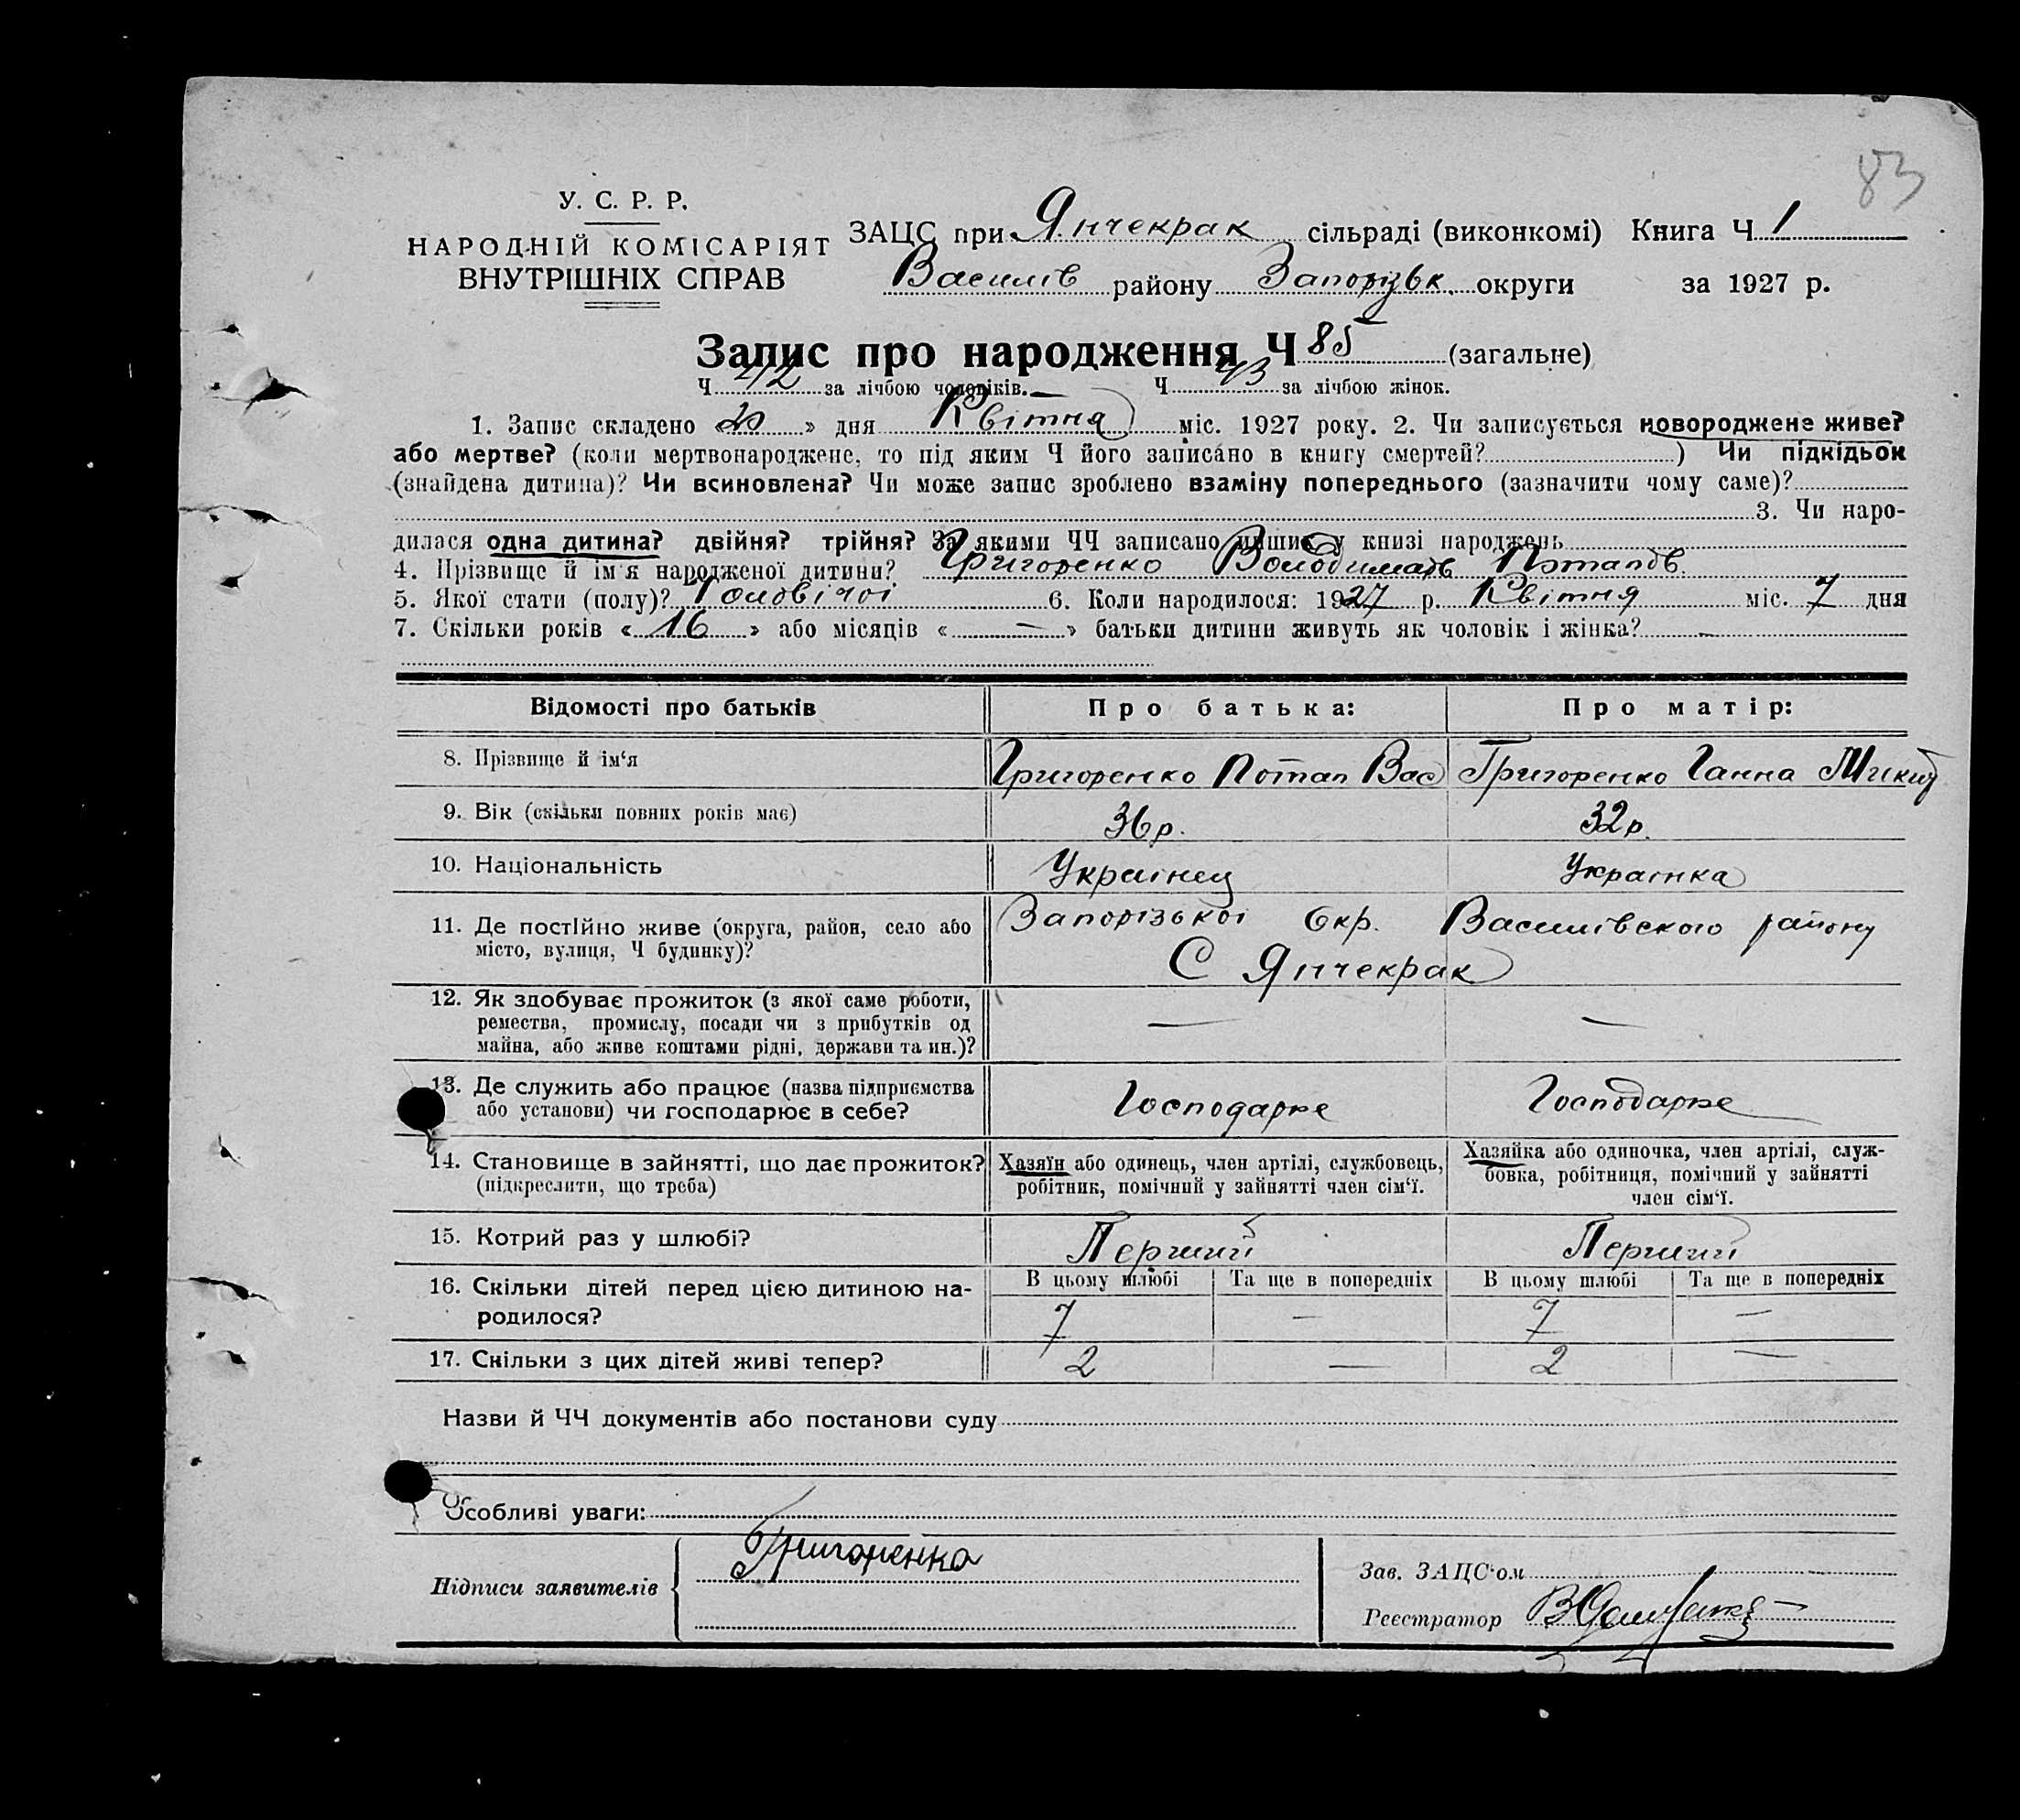 83
У. С. Р. Р.
НАРОДНІЙ КОМІСАРІЯТ
ВНУТРІШНІХ СПРАВ
ЗАЦС при Янчекрак сільраді (виконкомі) Книга Ч 1
Василів району Запорізьк. округи за 1927 р.
Запис про народження Ч 85 (загальне)
Ч 42 за лічбою чоловіків. — Ч 43 за лічбою жінок.
1. Запис складено «20» дня Квітня міс. 1927 року. 2. Чи записується новороджене живе?
або мертве? (коли мертвонароджене, то під яким Ч його записано в книгу смертей?) Чи підкідьок
(знайдена дитина)? Чи всиновлена? Чи може запис зроблено взаміну попереднього (зазначити чому саме)?
3. Чи наро-
дилася одна дитина? двійня? трійня? За якими ЧЧ записано инших у книзі народжень
4. Прізвище й ім'я народженої дитини? Григоренко Володимир Потапов.
5. Якої стати (полу)? Чоловічої 6. Коли народилося: 1927 р. Квітня міс. 7 дня
7. Скільки років «16» або місяців «—» батьки дитини живуть як чоловік і жінка?
Відомості про батьків Про батька: Про матір:
8. Прізвище й ім‘я Григоренко Потап Вас Григоренко Ганна Микит
9. Вік (скільки повних років має) 36 р. 32 р.
10. Національність Українец Українка
11. Де постійно живе (округа, район, село або Запорізької Окр. Василівского району
місто, вулиця, Ч будинку)? С Янчекрак
12. Як здобуває прожиток (з якої саме роботи,
ремества, промислу, посади чи з прибутків од — —
майна, або живе коштами рідні, держави та ин.)?
13. Де служить або працює (назва підприємства Господарює Господарює
або установи) чи господарює в себе?
14. Становище в зайнятті, що дає прожиток? Хазяїн або одинець, член артілі, службовець, Хазяйка або одиночка, член артілі, служ-
(підкреслити, що треба) робітник, помічний у зайнятті член сім‘ї. бовка, робітниця, помічний у зайнятті
член сім‘ї.
15. Котрий раз у шлюбі? Перший Перший
16. Скільки дітей перед цією дитиною на- В цьому шлюбі Та ще в попередніх В цьому шлюбі Та ще в попередніх
родилося? 7 — 7 —
17. Скільки з цих дітей живі тепер? 2 — 2 —
Назви й ЧЧ документів або постанови суду
Особливі уваги:
Підписи заявителів Григоренко
Зав. ЗАЦС‘ом
Реєстратор